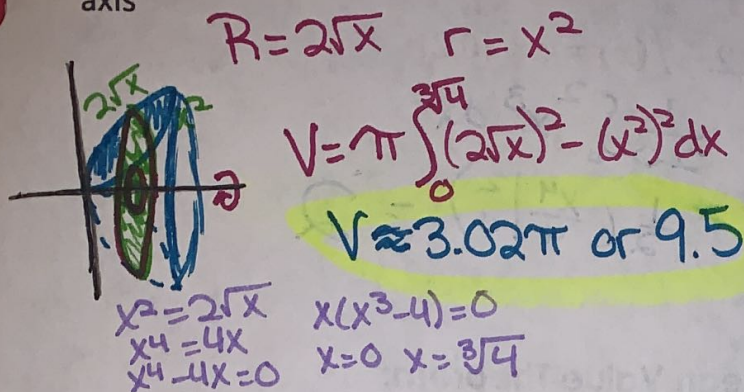 axis
R = 2√x r = x²
2√x x²
V = π ∫₀^∛4 (2√x)² - (x²)² dx
V ≈ 3.02π or 9.5
x² = 2√x x(x³-4) = 0
x⁴ = 4x x = 0 x = ∛4
x⁴ - 4x = 0